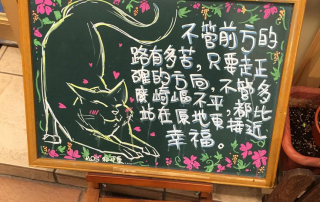 不管前方的
路有多苦，只要走正
確的方向，不管多
麼崎嶇不平，都比
站在原地更接近
幸福。